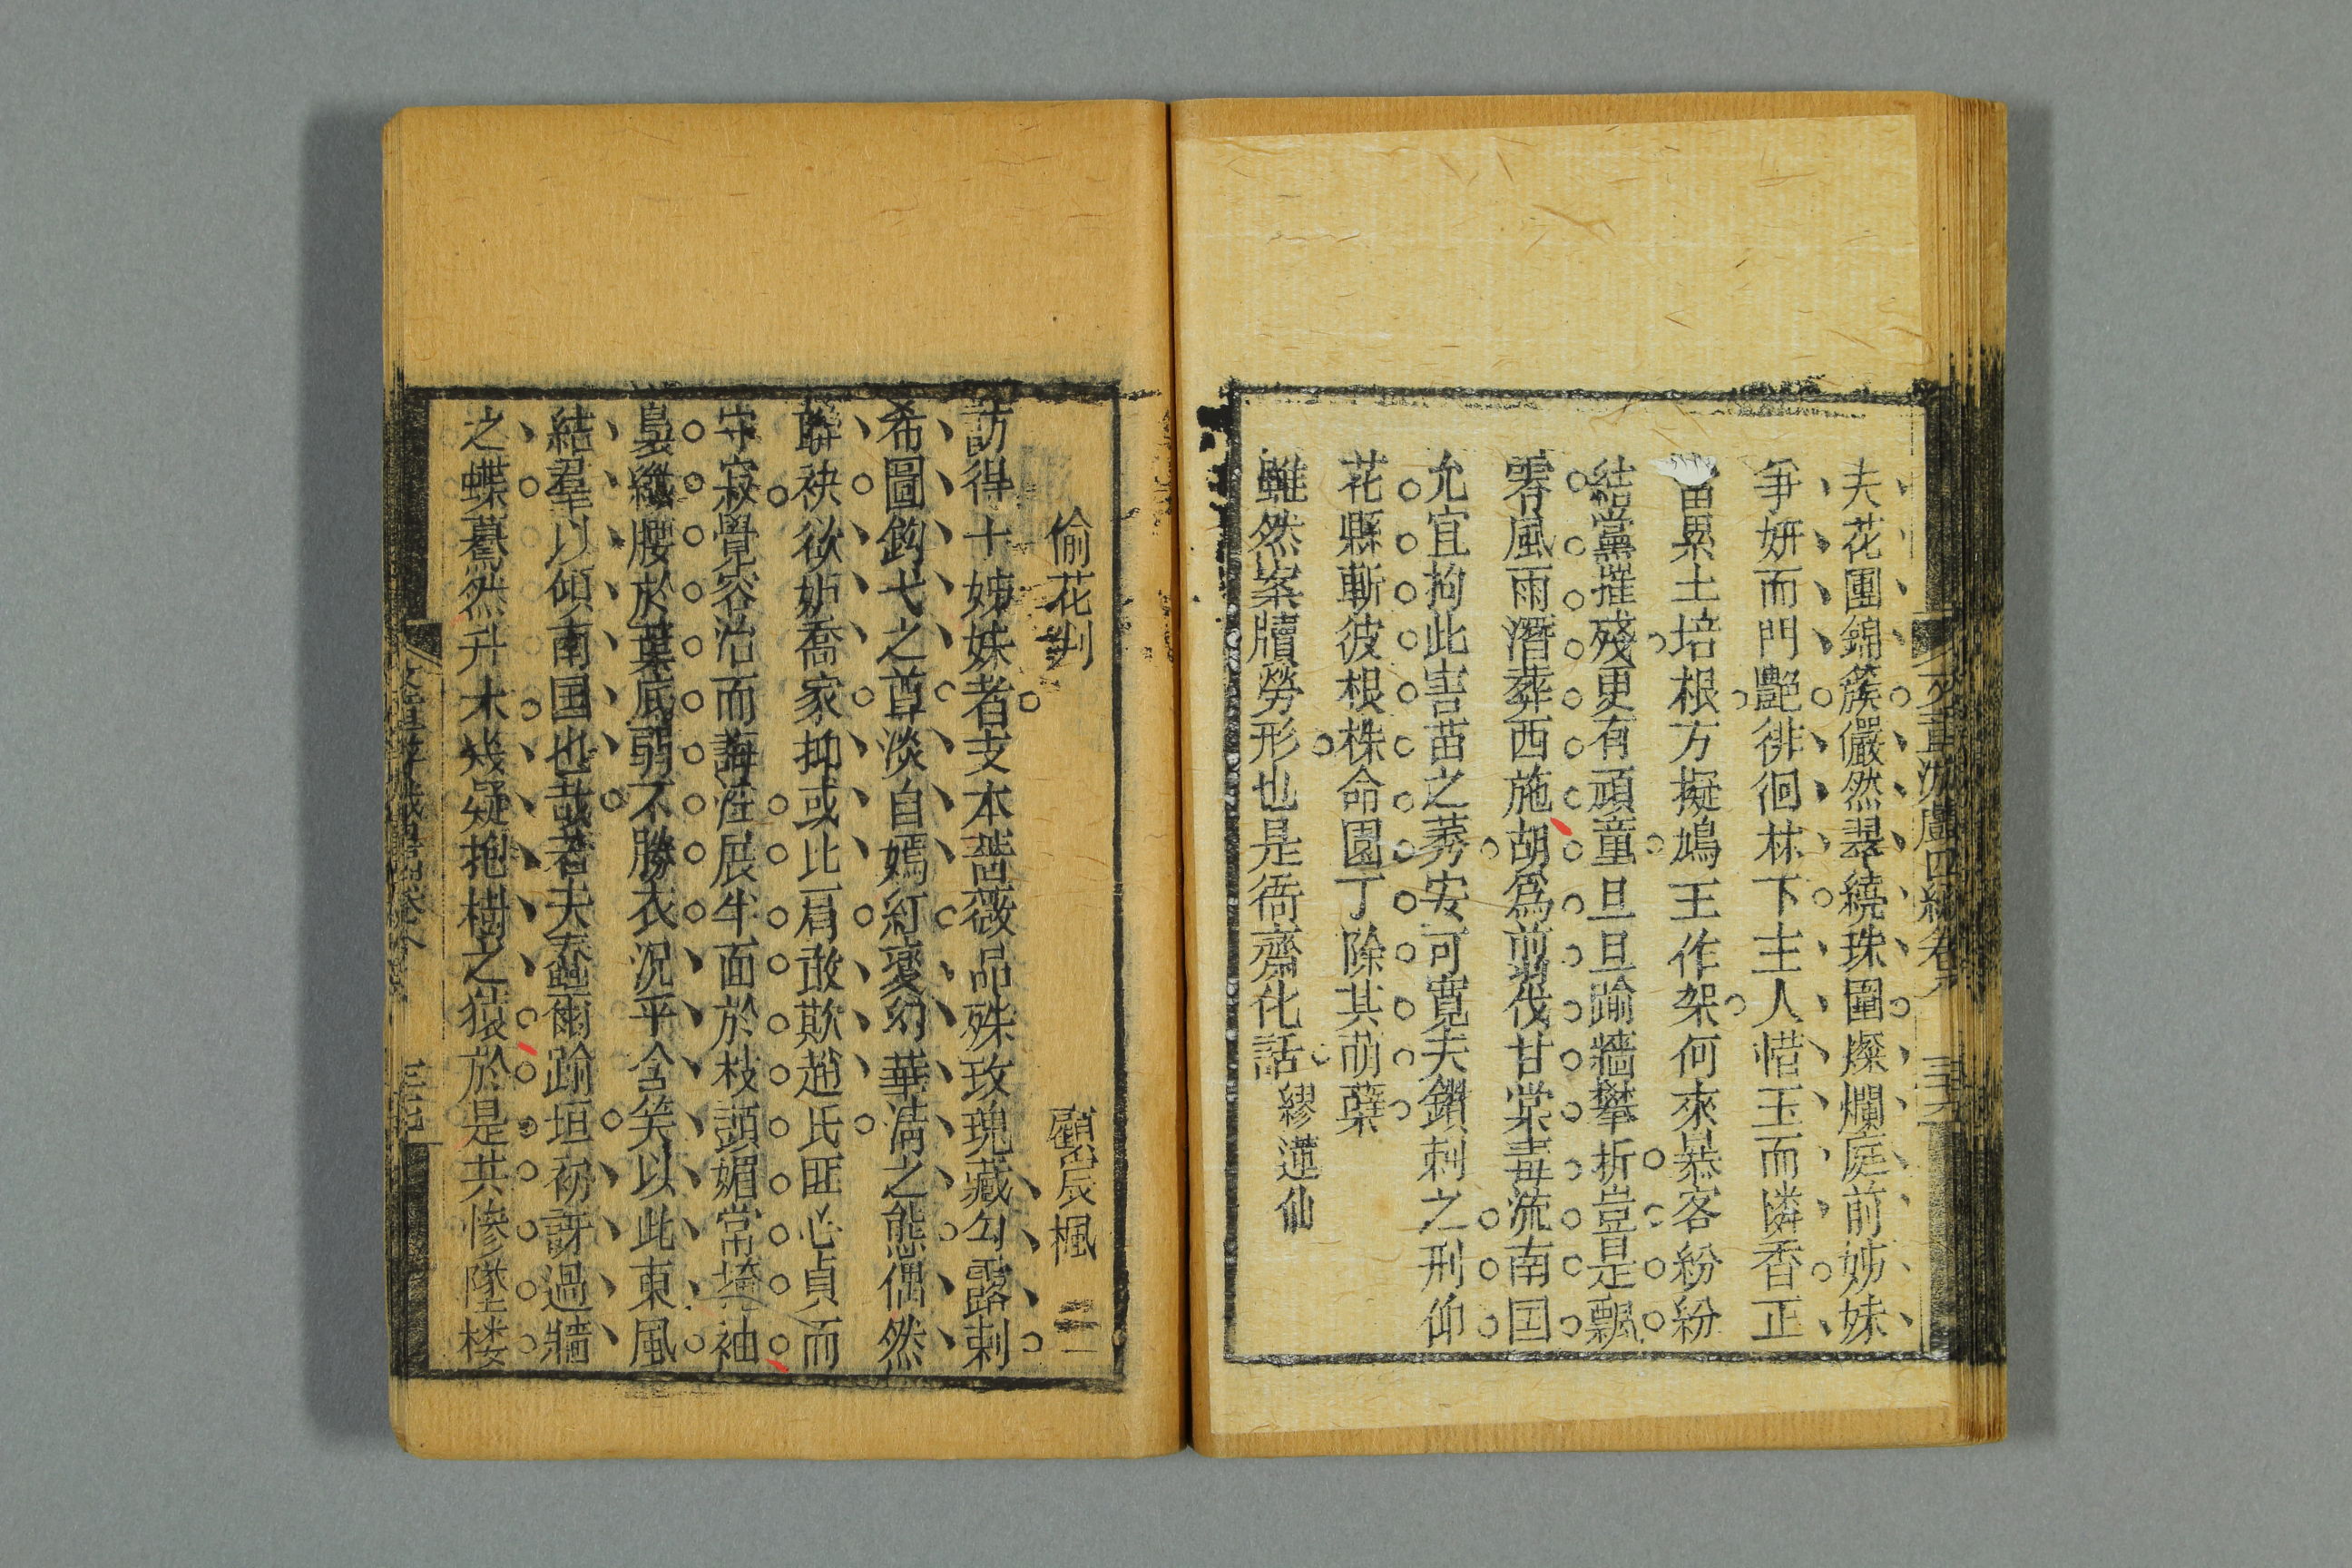 夫花團錦簇儼然翠繞珠圍燦爛庭前姊妹
爭妍而鬥艷徘徊林下主人惜玉而憐香正
當累土培根方擬鳩工作架何來暴客紛紛
結黨摧殘更有頑童旦旦踰牆攀折豈是飄
零風雨潛葬西施胡爲剪伐甘棠毒流南国
允宜拘此害苗之莠安可寬夫鑽刺之刑仰
花縣斬彼根株命園丁除其萌蘖
雖然案牘勞形也是衙齋化話繆蓮仙
偷花判 顧宸楓
訪得十姊妹者支本薔薇品殊玫瑰藏勾露刺
希圖鈎弋之尊淡白嫣紅變幻華清之態偶然
聯袂欲妒喬家抑或比肩敢欺趙氏匪心貞而
守寂覺容冶而誨淫展半面於枝頭媚常掩袖
裊纖腰於葉底弱不勝衣況乎含笑以此東風
結羣以傾南国也哉若夫蠢爾踰垣初訝過牆
之蝶驀然升木幾疑抱樹之猿於是共慘墜樓
三七